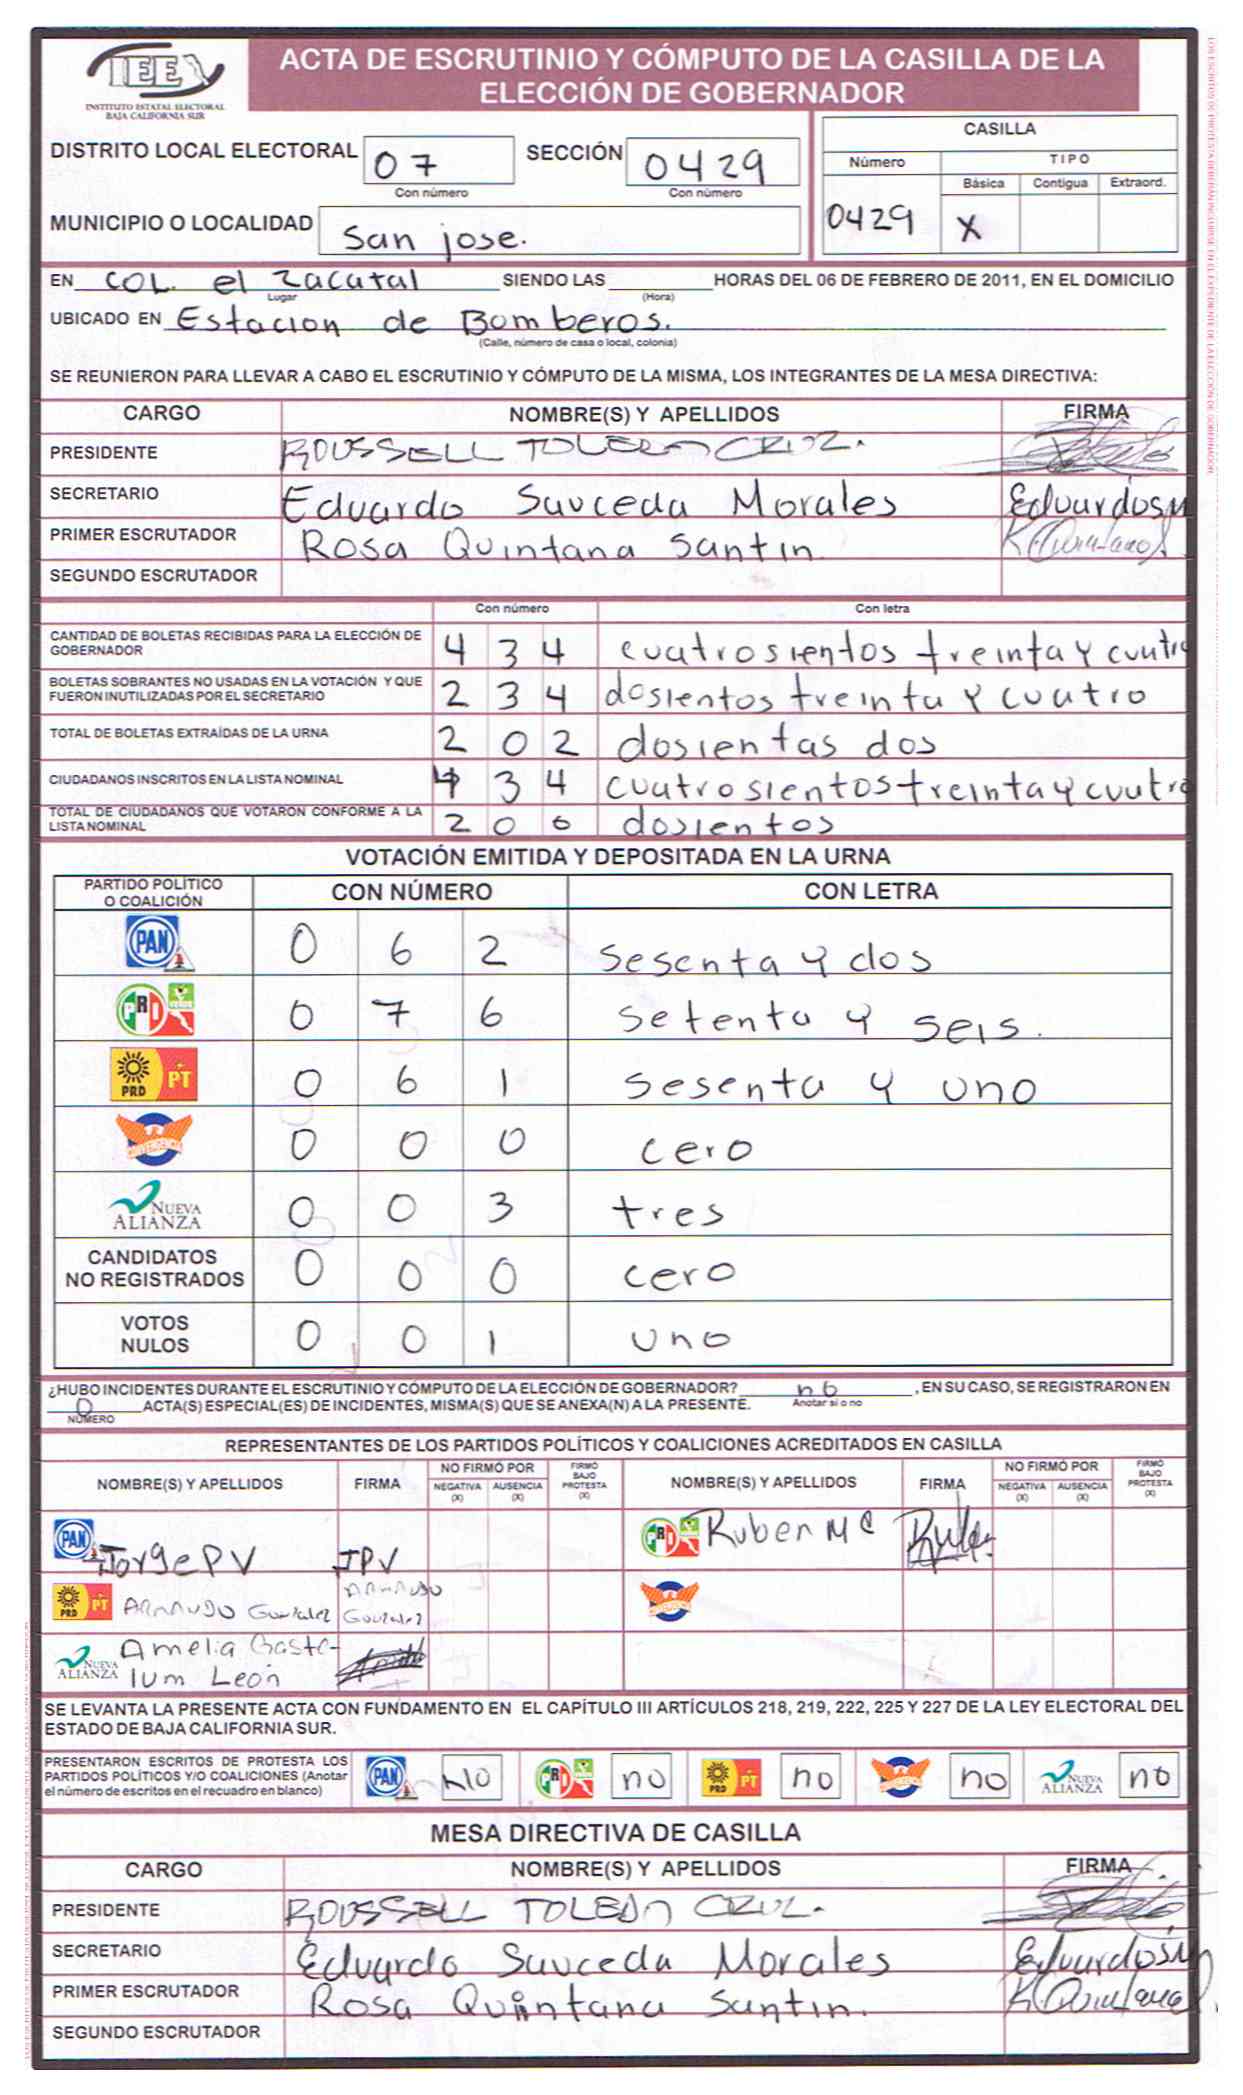 IEE
INSTITUTO ESTATAL ELECTORAL
BAJA CALIFORNIA SUR
ACTA DE ESCRUTINIO Y CÓMPUTO DE LA CASILLA DE LA
ELECCIÓN DE GOBERNADOR
DISTRITO LOCAL ELECTORAL 07 SECCIÓN 0429
Con número Con número
MUNICIPIO O LOCALIDAD San jose.
CASILLA
Número TIPO
Básica Contigua Extraord.
0429 X
EN COL. el Zacatal SIENDO LAS HORAS DEL 06 DE FEBRERO DE 2011, EN EL DOMICILIO
Lugar (Hora)
UBICADO EN Estacion de Bomberos.
(Calle, número de casa o local, colonia)
SE REUNIERON PARA LLEVAR A CABO EL ESCRUTINIO Y CÓMPUTO DE LA MISMA, LOS INTEGRANTES DE LA MESA DIRECTIVA:
CARGO NOMBRE(S) Y APELLIDOS FIRMA
PRESIDENTE ROUSSELL TOLEDO CRUZ.
SECRETARIO Eduardo Sauceda Morales Eduardosm
PRIMER ESCRUTADOR Rosa Quintana Santin.
SEGUNDO ESCRUTADOR
Con número Con letra
CANTIDAD DE BOLETAS RECIBIDAS PARA LA ELECCIÓN DE
GOBERNADOR 4 3 4 cuatrosientos treinta y cuatro
BOLETAS SOBRANTES NO USADAS EN LA VOTACIÓN Y QUE
FUERON INUTILIZADAS POR EL SECRETARIO 2 3 4 dosientos treinta y cuatro
TOTAL DE BOLETAS EXTRAÍDAS DE LA URNA 2 0 2 dosientas dos
CIUDADANOS INSCRITOS EN LA LISTA NOMINAL 4 3 4 cuatrosientos treinta y cuatro
TOTAL DE CIUDADANOS QUE VOTARON CONFORME A LA
LISTA NOMINAL 2 0 0 dosientos
VOTACIÓN EMITIDA Y DEPOSITADA EN LA URNA
PARTIDO POLÍTICO
O COALICIÓN CON NÚMERO CON LETRA
PAN 0 6 2 sesenta y dos
PRD VERDE 0 7 6 setenta y seis.
PRD PT 0 6 1 sesenta y uno
CONVERGENCIA 0 0 0 cero
NUEVA
ALIANZA 0 0 3 tres
CANDIDATOS
NO REGISTRADOS 0 0 0 cero
VOTOS
NULOS 0 0 1 uno
¿HUBO INCIDENTES DURANTE EL ESCRUTINIO Y CÓMPUTO DE LA ELECCIÓN DE GOBERNADOR? no , EN SU CASO, SE REGISTRARON EN
0 ACTA(S) ESPECIAL(ES) DE INCIDENTES, MISMA(S) QUE SE ANEXA(N) A LA PRESENTE. Anotar sí o no
NÚMERO
REPRESENTANTES DE LOS PARTIDOS POLÍTICOS Y COALICIONES ACREDITADOS EN CASILLA
NOMBRE(S) Y APELLIDOS FIRMA NO FIRMÓ POR NEGATIVA (X) AUSENCIA (X) FIRMÓ BAJO PROTESTA (X) NOMBRE(S) Y APELLIDOS FIRMA NO FIRMÓ POR NEGATIVA (X) AUSENCIA (X) FIRMÓ BAJO PROTESTA (X)
PAN Jorge PV JPV PRD Ruben M C
PRD PT ARMANDO Gonzalez ARMANDO Gonzalez CONVERGENCIA
NUEVA ALIANZA Amelia Gaste-
lum León
SE LEVANTA LA PRESENTE ACTA CON FUNDAMENTO EN EL CAPÍTULO III ARTÍCULOS 218, 219, 222, 225 Y 227 DE LA LEY ELECTORAL DEL
ESTADO DE BAJA CALIFORNIA SUR.
PRESENTARON ESCRITOS DE PROTESTA LOS
PARTIDOS POLÍTICOS Y/O COALICIONES (Anotar
el número de escritos en el recuadro en blanco)
PAN NO PRD no PRD PT no CONVERGENCIA no NUEVA ALIANZA no
MESA DIRECTIVA DE CASILLA
CARGO NOMBRE(S) Y APELLIDOS FIRMA
PRESIDENTE ROUSSELL TOLEDO CRUZ.
SECRETARIO Eduardo Sauceda Morales Eduardosm
PRIMER ESCRUTADOR Rosa Quintana Santin.
SEGUNDO ESCRUTADOR
LOS ESCRITOS DE PROTESTA DEBERÁN INCLUIRSE EN EL EXPEDIENTE DE LA ELECCIÓN DE GOBERNADOR